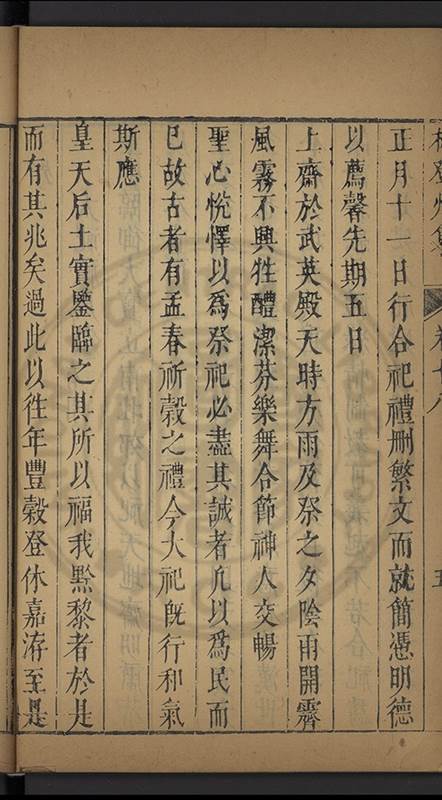 正月十一日行合祀禮刪繁文而就簡憑明德
以薦馨先期五日
上齋於武英殿天時方雨及祭之夕陰雨開霽
風霧不興牲醴潔芬樂舞合節神人交暢
聖心悅懌以為祭祀必盡其誠者凡以爲民而
已故古者有孟春祈穀之禮今大祀旣行和氣
斯應
皇天后土實鑒臨之其所以福我黔黎者於是
而有其兆矣過此以往年豐穀登休嘉洊至是